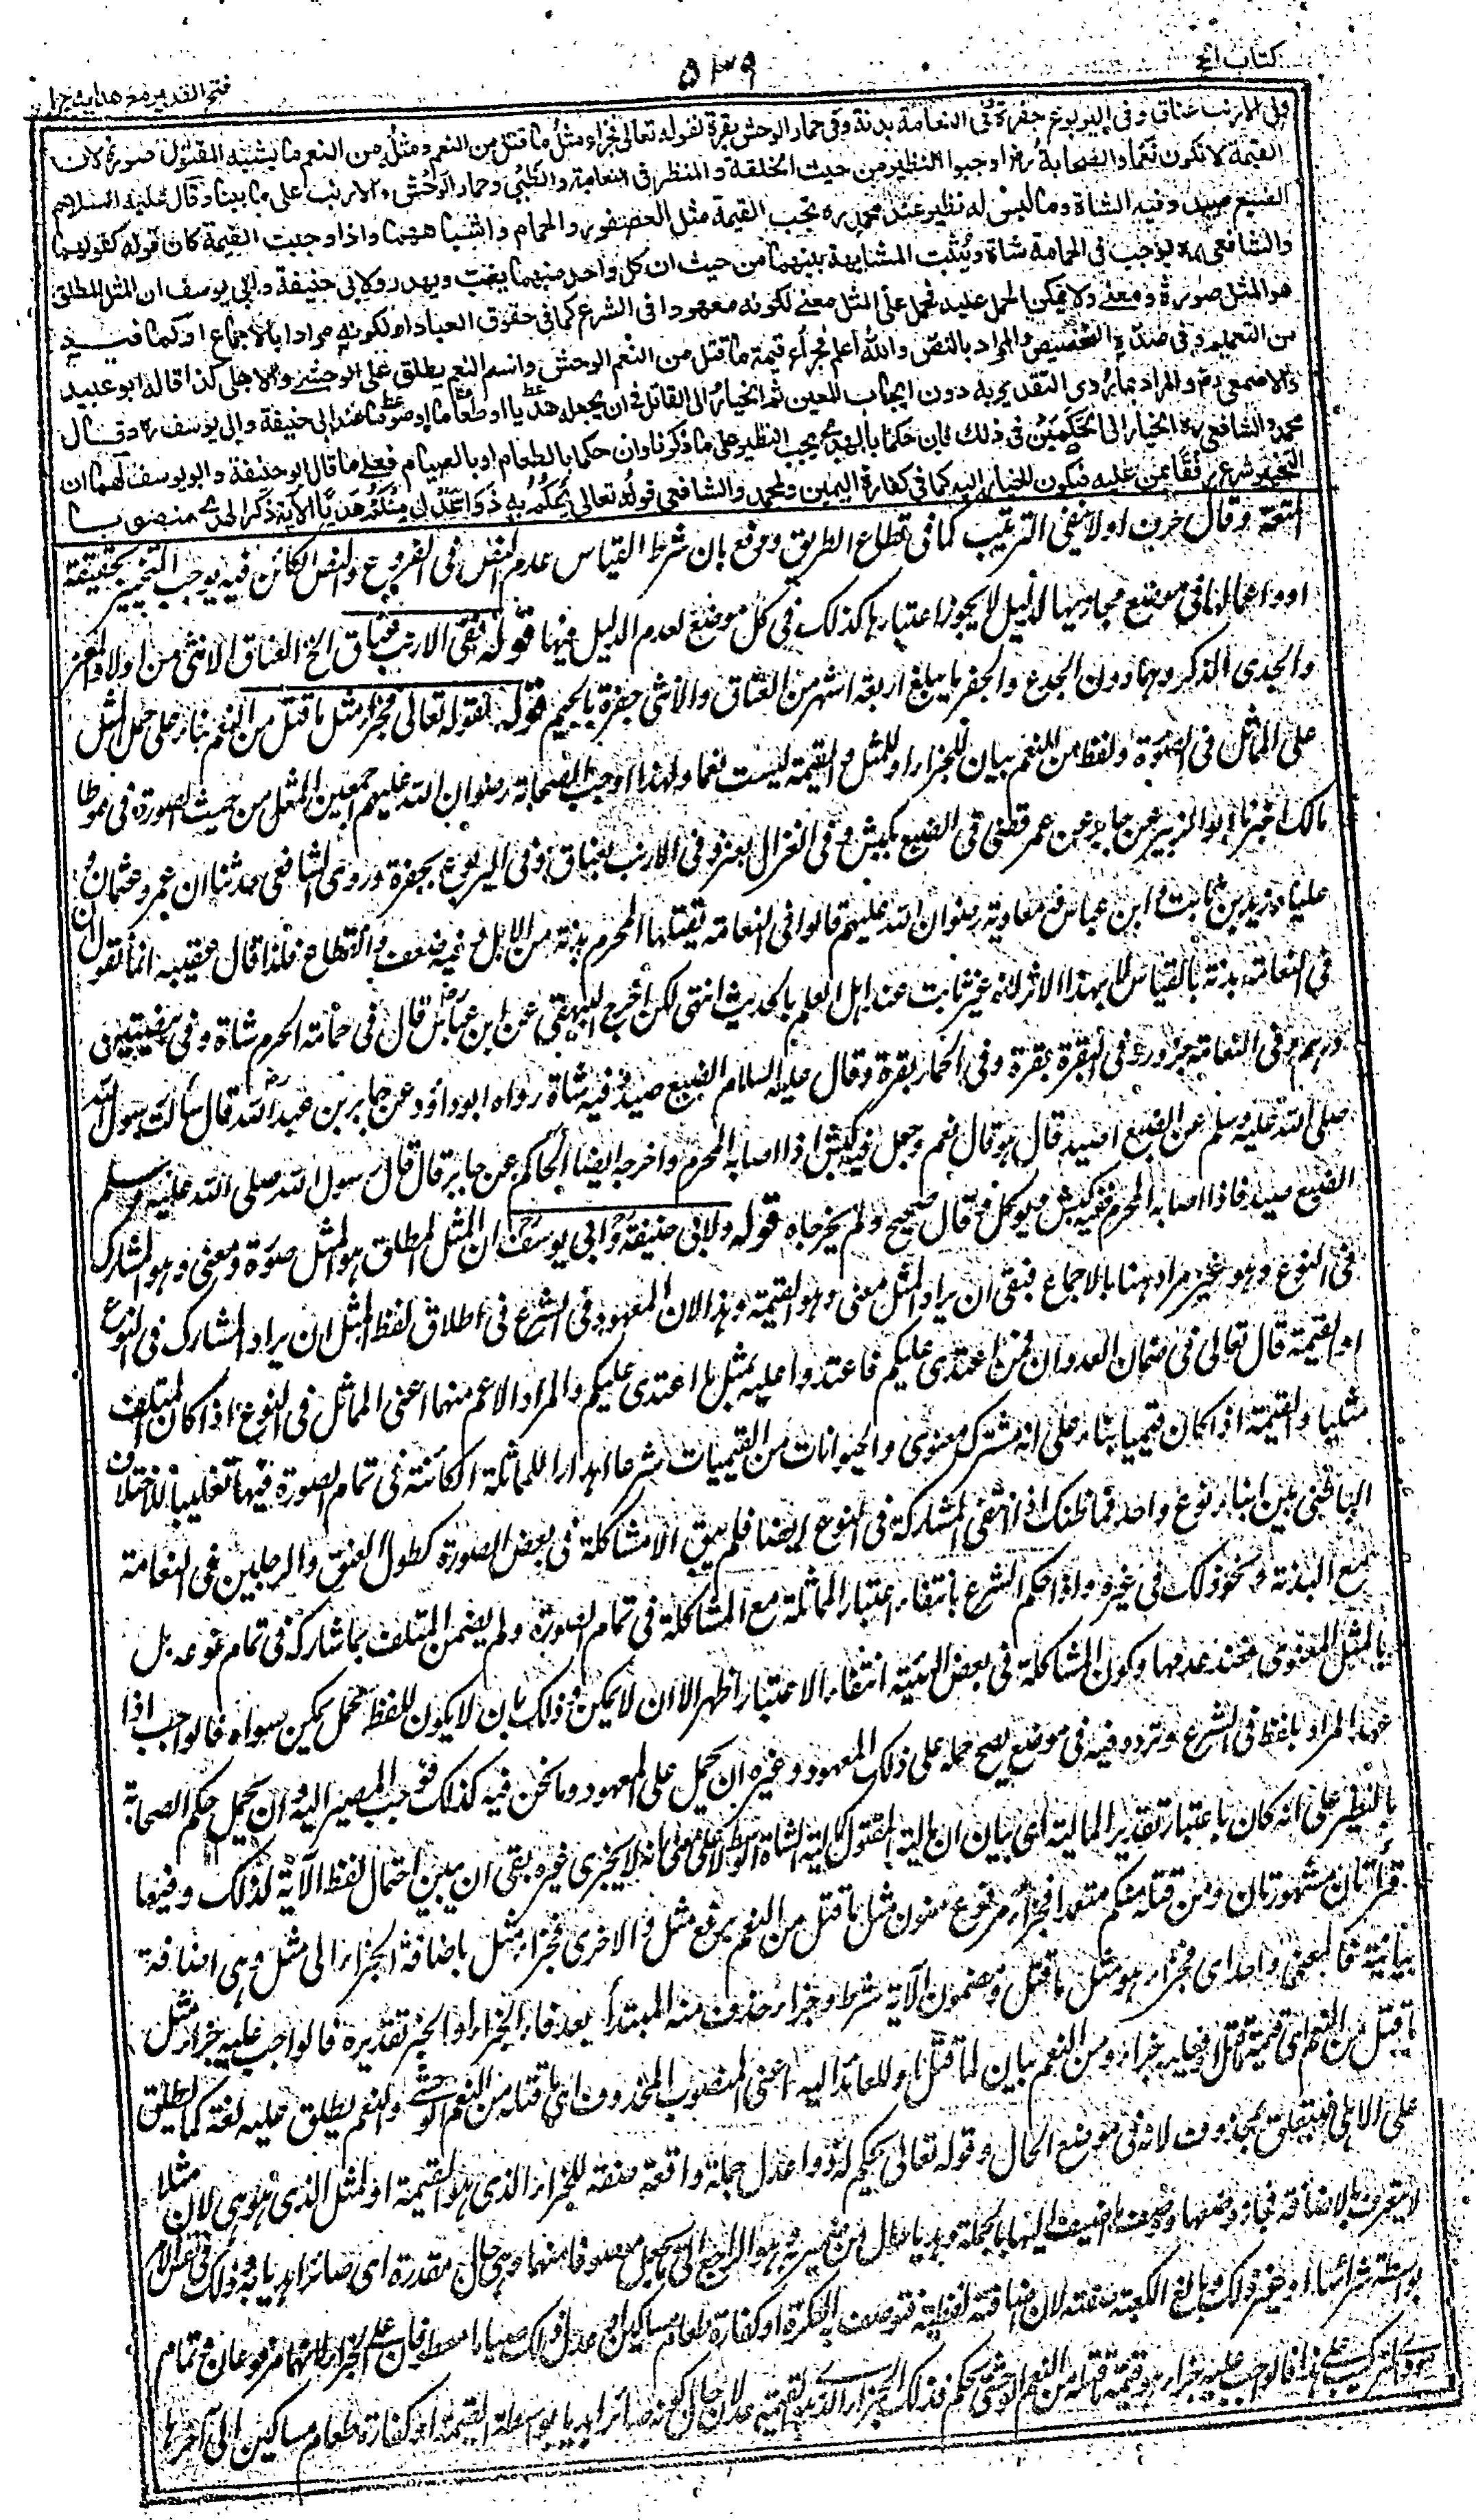 كتاب الحج
٥٣٩
فتح القدير مع هدايه جزا
وفى الارنب عناق وفى اليربوع جفرة وفى النعامة بدنة وفى حمار الوحش بقرة لقوله تعالى فجزاء مثل ما قتل من النعم ومثله من النعم ما يشبه المقتول صورة لان
القيمة لا تكون نعما والصحابة رض اوجبوا النظير من حيث الخلقة والمنظر فى النعامة والظبى وحمار الوحش والارنب على ما بينا وقال عليه السلام
الضبع صيد وفيه الشاة وما ليس له نظير عند محمد ره تجب القيمة مثل العصفور والحمام واشباههما واذا وجبت القيمة كان قوله كقولهما
والشافعى ره يوجب فى الحمامة شاة ويثبت المشابهة بينهما من حيث ان كل واحد منهما يعب ويهدر ولابى حنيفة وابى يوسف ان المثل المطلق
هو المثل صورة ومعنى ولا يمكن الحمل عليه فحمل على المثل معنى لكونه معهودا فى الشرع كما فى حقوق العباد او لكونه مرادا بالاجماع او لما فيه
من التعميم وفى ضده التخصيص والمراد بالنص والله اعلم فجزاء قيمة ما قتل من النعم الوحش واسم النعم يطلق على الوحشى والاهلى كذا قاله ابو عبيد
والاصمعى ره والمراد بما روى التقدير به دون ايجاب المعين ثم الخيار الى القاتل فى ان يجعله هديا او طعاما او صوما عند ابى حنيفة وابى يوسف ره وقال
محمد والشافعى ره الخيار الى الحكمين فى ذلك فان حكما بالهدى يجب النظير على ما ذكرنا وان حكما بالطعام او بالصيام فعلى ما قال ابو حنيفة وابو يوسف لهما ان
التخيير شرع رفقا بمن عليه فيكون الخيار اليه كما فى كفارة اليمين ولمحمد والشافعى قوله تعالى يحكم به ذوا عدل منكم هديا الاية ذكر الهدى منصوبا
المتعة وقال حرف او لا ينفى الترتيب كما فى قطاع الطريق ودفع بان شرط القياس عدم النص فى الفروع والنص الكائن فيه يوجب التخيير بحقيقة
او واعمالها فى موضع مجازيتها لدليل لا يجوز اعتبارها كذلك فى كل موضع لعدم الدليل فيها قوله ففى الارنب عناق الخ العناق الانثى من اولاد المعز
والجدى الذكر وهما دون الجذع والجفر ما يبلغ اربعة اشهر من العناق والانثى جفرة بالجيم قوله لقوله تعالى فجزاء مثل ما قتل من النعم بناء على حمل المثل
على المماثل فى الصورة ولفظ من النعم بيان للجزاء او للمثل والقيمة ليست نعما ولهذا اوجب الصحابة رضوان الله عليهم اجمعين المثل من حيث الصورة فى موطا
مالك اخبرنا ابو الزبير عن جابر عن عمر قضى فى الضبع بكبش وفى الغزال بعنز وفى الارنب بعناق وفى اليربوع بجفرة وروى الشافعى حدثنا ان عمر وعثمان
عليا وزيد بن ثابت وابن عباس ومعاوية رضوان الله عليهم قالوا فى النعامة يقتلها المحرم بدنة من الابل وفيه ضعف وانقطاع فلذا قال عقيبه انما نقول ان
فى النعامة بدنة بالقياس لا بهذا الاثر لانه غير ثابت عند اهل العلم بالحديث انتهى لكن اخرج البيهقى عن ابن عباس قال فى حمامة الحرم شاة وفى بيضتين
درهم وفى النعامة جزور وفى البقرة بقرة وفى الحمار بقرة وقال عليه السلام الضبع صيد وفيه شاة رواه ابو داؤد عن جابر بن عبد الله قال سألت رسول الله
صلى الله عليه وسلم عن الضبع اصيد قال هو قال نعم وجعل فيه كبش اذا اصابه المحرم واخرجه ايضا الحاكم عن جابر قال قال رسول الله صلى الله عليه وسلم
الضبع صيد فاذا اصابه المحرم ففيه كبش ويوكل وقال صحيح ولم يخرجاه قوله ولابى حنيفة وابى يوسف ان المثل المطلق هو المثل صورة ومعنى وهو المشارك
فى النوع وهو غير مراد ههنا بالاجماع فبقى ان يراد المثل معنى وهو القيمة وهذا لان المعهود فى الشرع فى اطلاق لفظ المثل ان يراد المشارك فى النوع
او القيمة قال تعالى فى ضمان العدوان فمن اعتدى عليكم فاعتدوا عليه بمثل ما اعتدى عليكم والمراد الاعم منها اعنى المماثل فى النوع اذا كان المتلف
مثليا والقيمة اذا كان قيميا بناء على انه مشترك معنوى والحيوانات من القيميات شرعا اهدارا للمماثلة الكائنة فى تمام الصورة فيها تغليبا للاختلاف
الباطنى بين ابناء نوع واحد فما ظنك اذا انتفى المشاركة فى النوع ايضا فلم يبق الا مشاكلة فى بعض الصورة كطول العنق والرجلين فى النعامة
مع البدنة ونحو ذلك فى غيره واذا حكم الشرع بانتفاء اعتبار المماثلة مع المشاكلة فى تمام الصورة ولم يضمن المتلف بما شاركه فى تمام نوعه بل
بالمثل المعنوى فعند عدمها وكون المشاكلة فى بعض الهيئة انتفاء الاعتبار اظهر الا ان لا يمكن وذلك بان لا يكون للفظ محمل يمكن سواه فالواجب اذا
عهد المراد بلفظ فى الشرع وتردد فيه فى موضع يصح حمله على ذلك المعهود وغيره ان يحمل على المعهود وما نحن فيه كذلك فوجب المصير اليه وان يحمل حكم الصحابة
بالنظير على انه كان باعتبار تقدير المالية اى بيان ان مالية المقتول كمالية الشاة الوسط لا على معنى انه لا يجزى غيره بقى ان يبين احتمال لفظ الآية لذلك وفيها
قرأتان مشهورتان ومن قتله منكم متعمدا فجزاء مرفوع منون مثل ما قتل من النعم برفع مثل والاخرى فجزاء مثل باضافة الجزاء الى مثل وهى اضافة
بيانية فالمعنى واحد اى فجزاء هو مثل ما قتل ومضمون الآية شرط وجزاء حذف منه المبتدأ بعد فاء الجزاء او الخبر تقديره فالواجب عليه جزاء مثل
ما قتل من النعم اى قيمة ما قتل او فعليه جزاء ومن النعم بيان لما قتل او للعائد اليه اعنى المنصوب المحذوف اى ما قتله من النعم الوحشى والنعم يطلق عليه لغة كما يطلق
على الاهلى فيتعلق بمحذوف لانه فى موضع الحال وقوله تعالى يحكم به ذوا عدل جملة واقعة صفة للجزاء الذى هو القيمة او لمثل الذى هو هى لان مثلا
لا يتعرف بالاضافة فجاز وصفها ووصف ما اضيف اليها بالجملة وهديا حال من ضمير به وهو الراجع الى ما يجعل موصوفا منهما وهى حال مقدرة اى صائرا هديا به وذلك
بواسطة شرائها او غير ذلك وبالغ الكعبة صفته لان اضافته لفظية فتوصف به النكرة او كفارة طعام مساكين او عدل ذلك صياما معطوفان على الجزاء
فالواجب عليه جزاء هو قيمة ما قتله من النعم الوحشى يحكم بذلك الجزاء الذى هو القيمة عدلان حال كونه صائرا هديا بواسطة القيمة او كفارة طعام مساكين الى آخرها